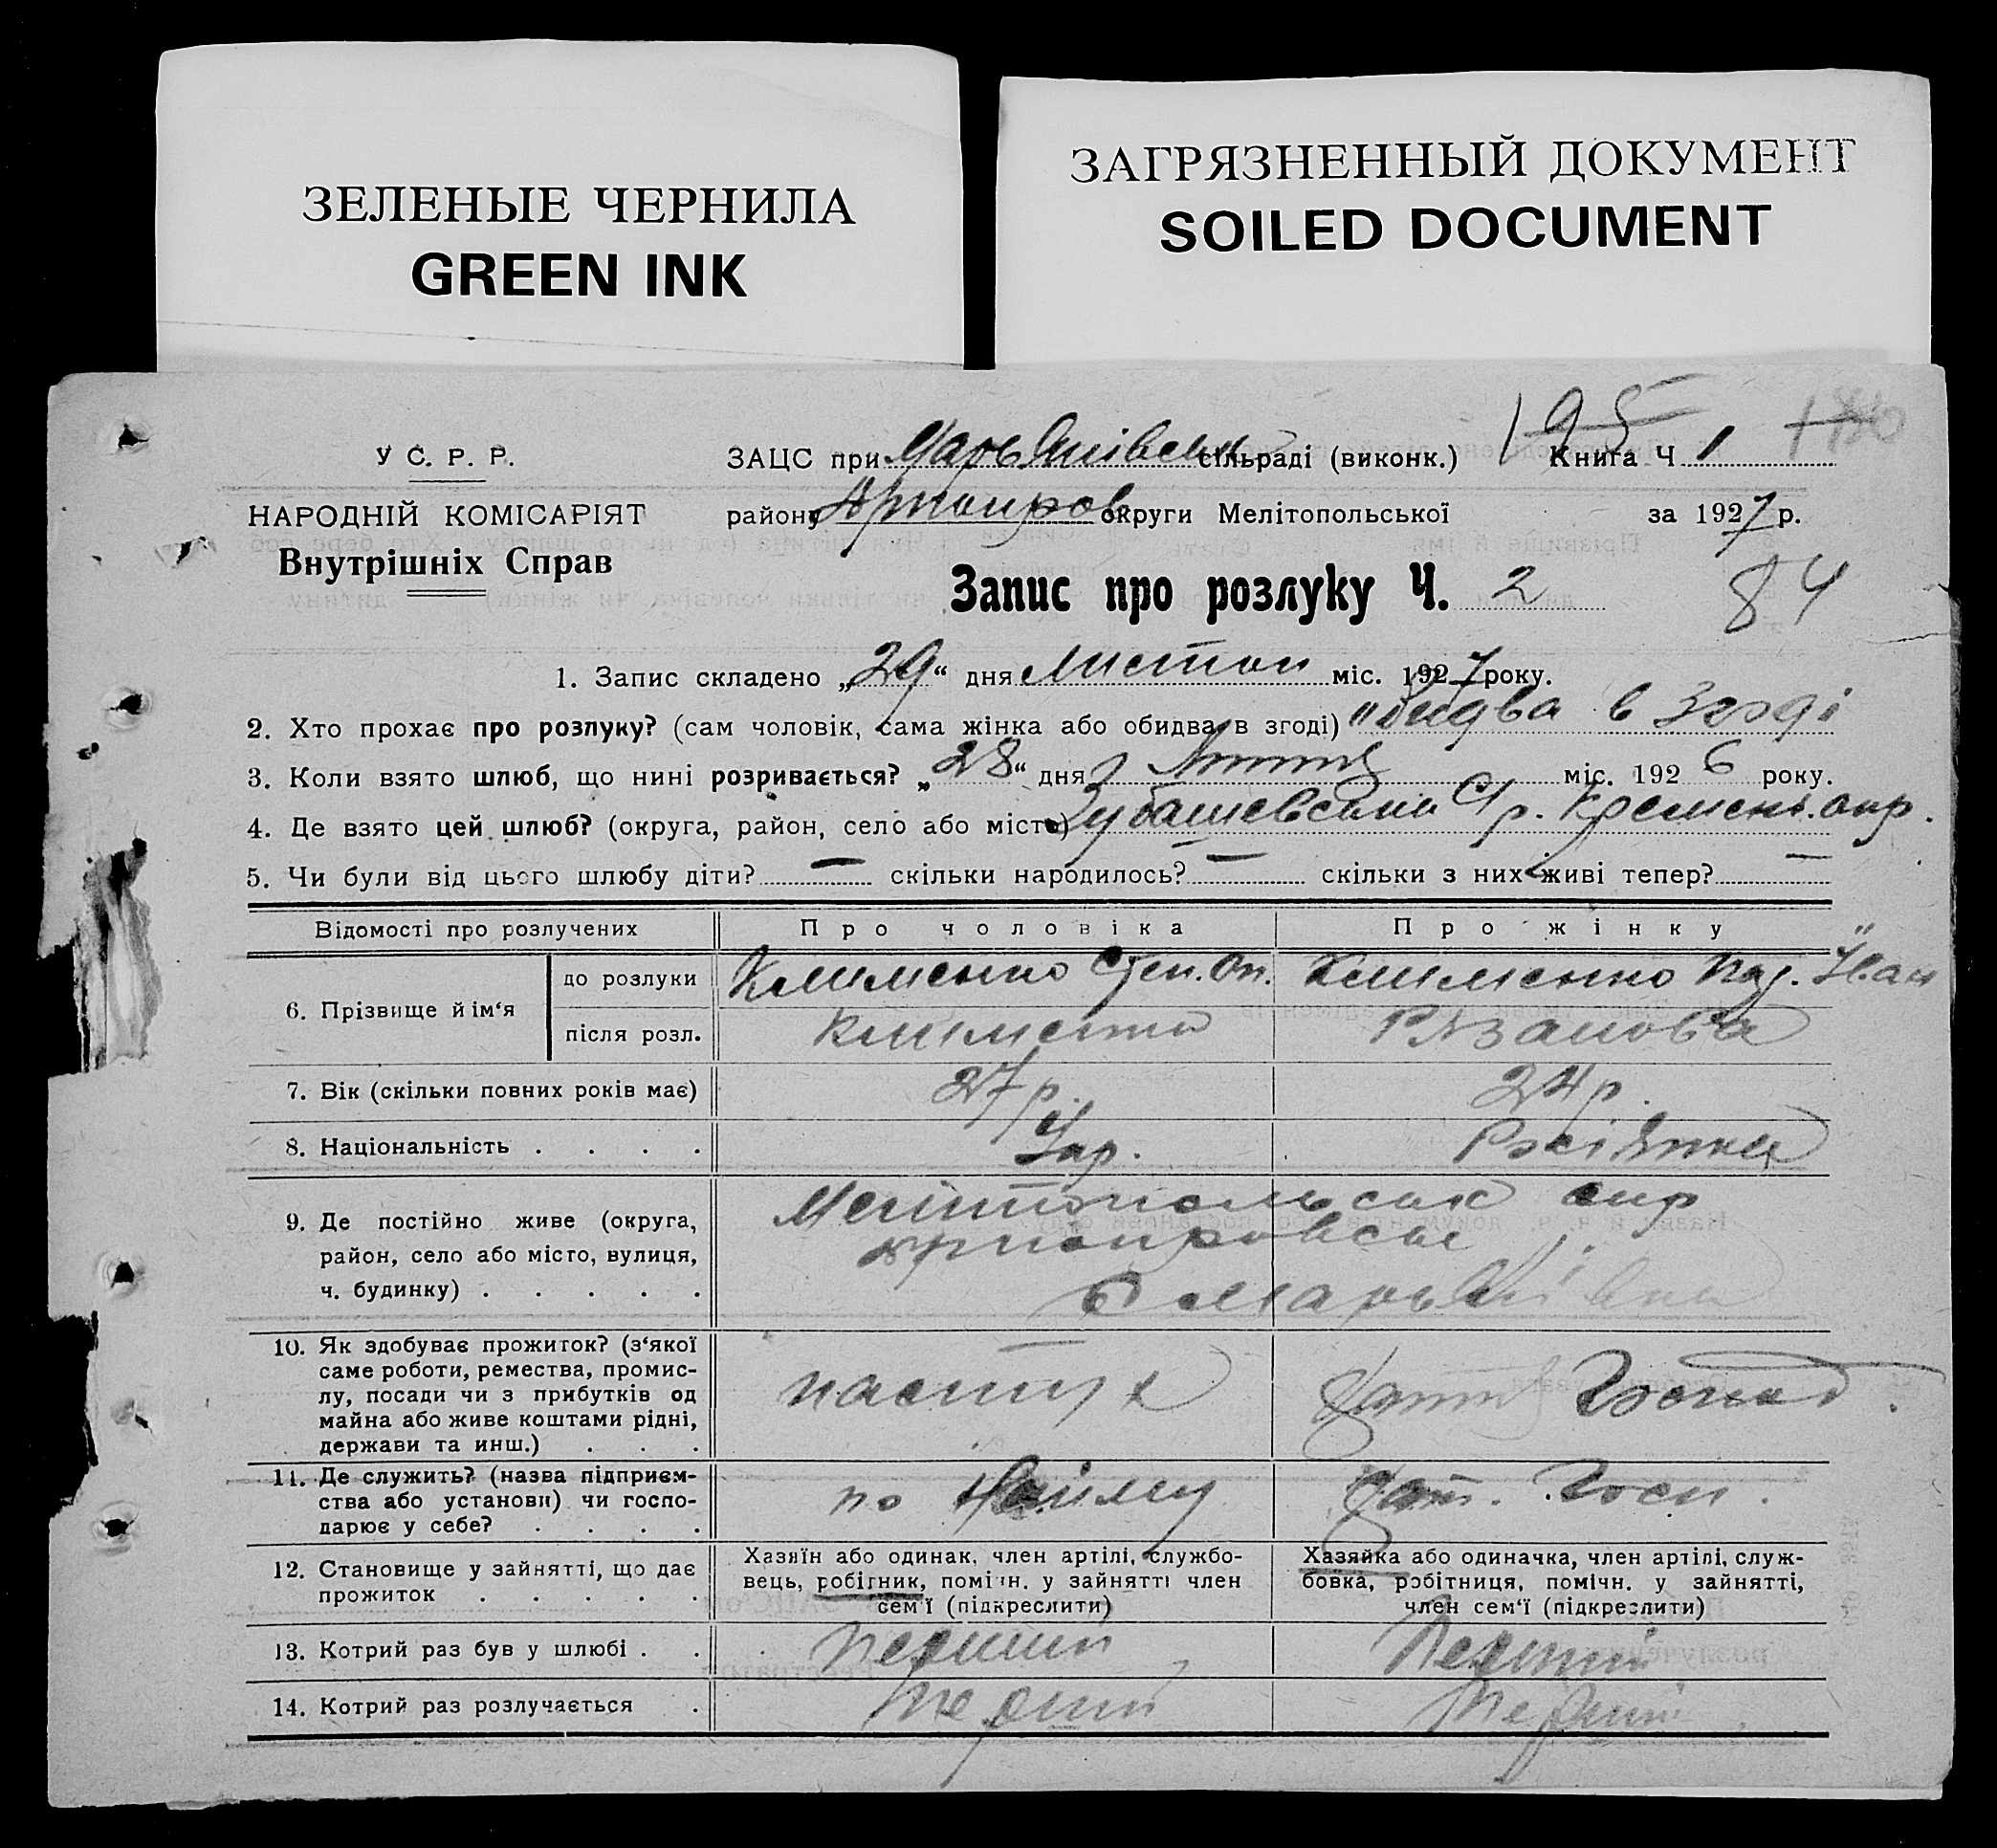 ЗЕЛЕНЫЕ ЧЕРНИЛА
GREEN INK
ЗАГРЯЗНЕННЫЙ ДОКУМЕНТ
SOILED DOCUMENT
195
У С. Р. Р.
НАРОДНІЙ КОМІСАРІЯТ
Внутрішніх Справ
ЗАЦС при Марьянівськ сільраді (виконк.) Книга Ч 1
району округи Мелітопольської за 1927 р.
Запис про розлуку Ч. 2
84
1. Запис складено „29“ дня Листоп міс. 1927 року.
2. Хто прохає про розлуку? (сам чоловік, сама жінка або обидва в згоді) обидва в згоді
3. Коли взято шлюб, що нині розривається? „28“ дня міс. 1926 року.
4. Де взято цей шлюб? (округа, район, село або місто) Кремень. окр.
5. Чи були від цього шлюбу діти? — скільки народилось? — скільки з них живі тепер? —
Відомості про розлучених
Про чоловіка
Про жінку
6. Прізвище й ім‘я
до розлуки
Клименко Степ. Оп.
Клименко Над. Іван
після розл.
Клименко
Рязанова
7. Вік (скільки повних років має)
27 р.
24 р.
8. Національність . . . .
Укр.
Росіянка
9. Де постійно живе (округа,
район, село або місто, вулиця,
ч. будинку) . . . . .
Мелітопольськ окр
с Марьянівка
10. Як здобуває прожиток? (з‘якої
саме роботи, ремества, промис-
лу, посади чи з прибутків од
майна або живе коштами рідні,
держави та инш.) . . .
пастух
Домаш Господ.
11. Де служить? (назва підприєм-
ства або установи) чи госпо-
дарює у себе? . . . .
по Найму
Дом. Госп.
12. Становище у зайнятті, що дає
прожиток . . . . .
Хазяїн або одинак, член артілі, службо-
вець, робітник, помічн. у зайнятті член
сем‘ї (підкреслити)
Хазяйка або одиначка, член артілі, служ-
бовка, робітниця, помічн. у зайнятті,
член сем‘ї (підкреслити)
13. Котрий раз був у шлюбі . .
Перший
Перший
14. Котрий раз розлучається .
Перший
Перший